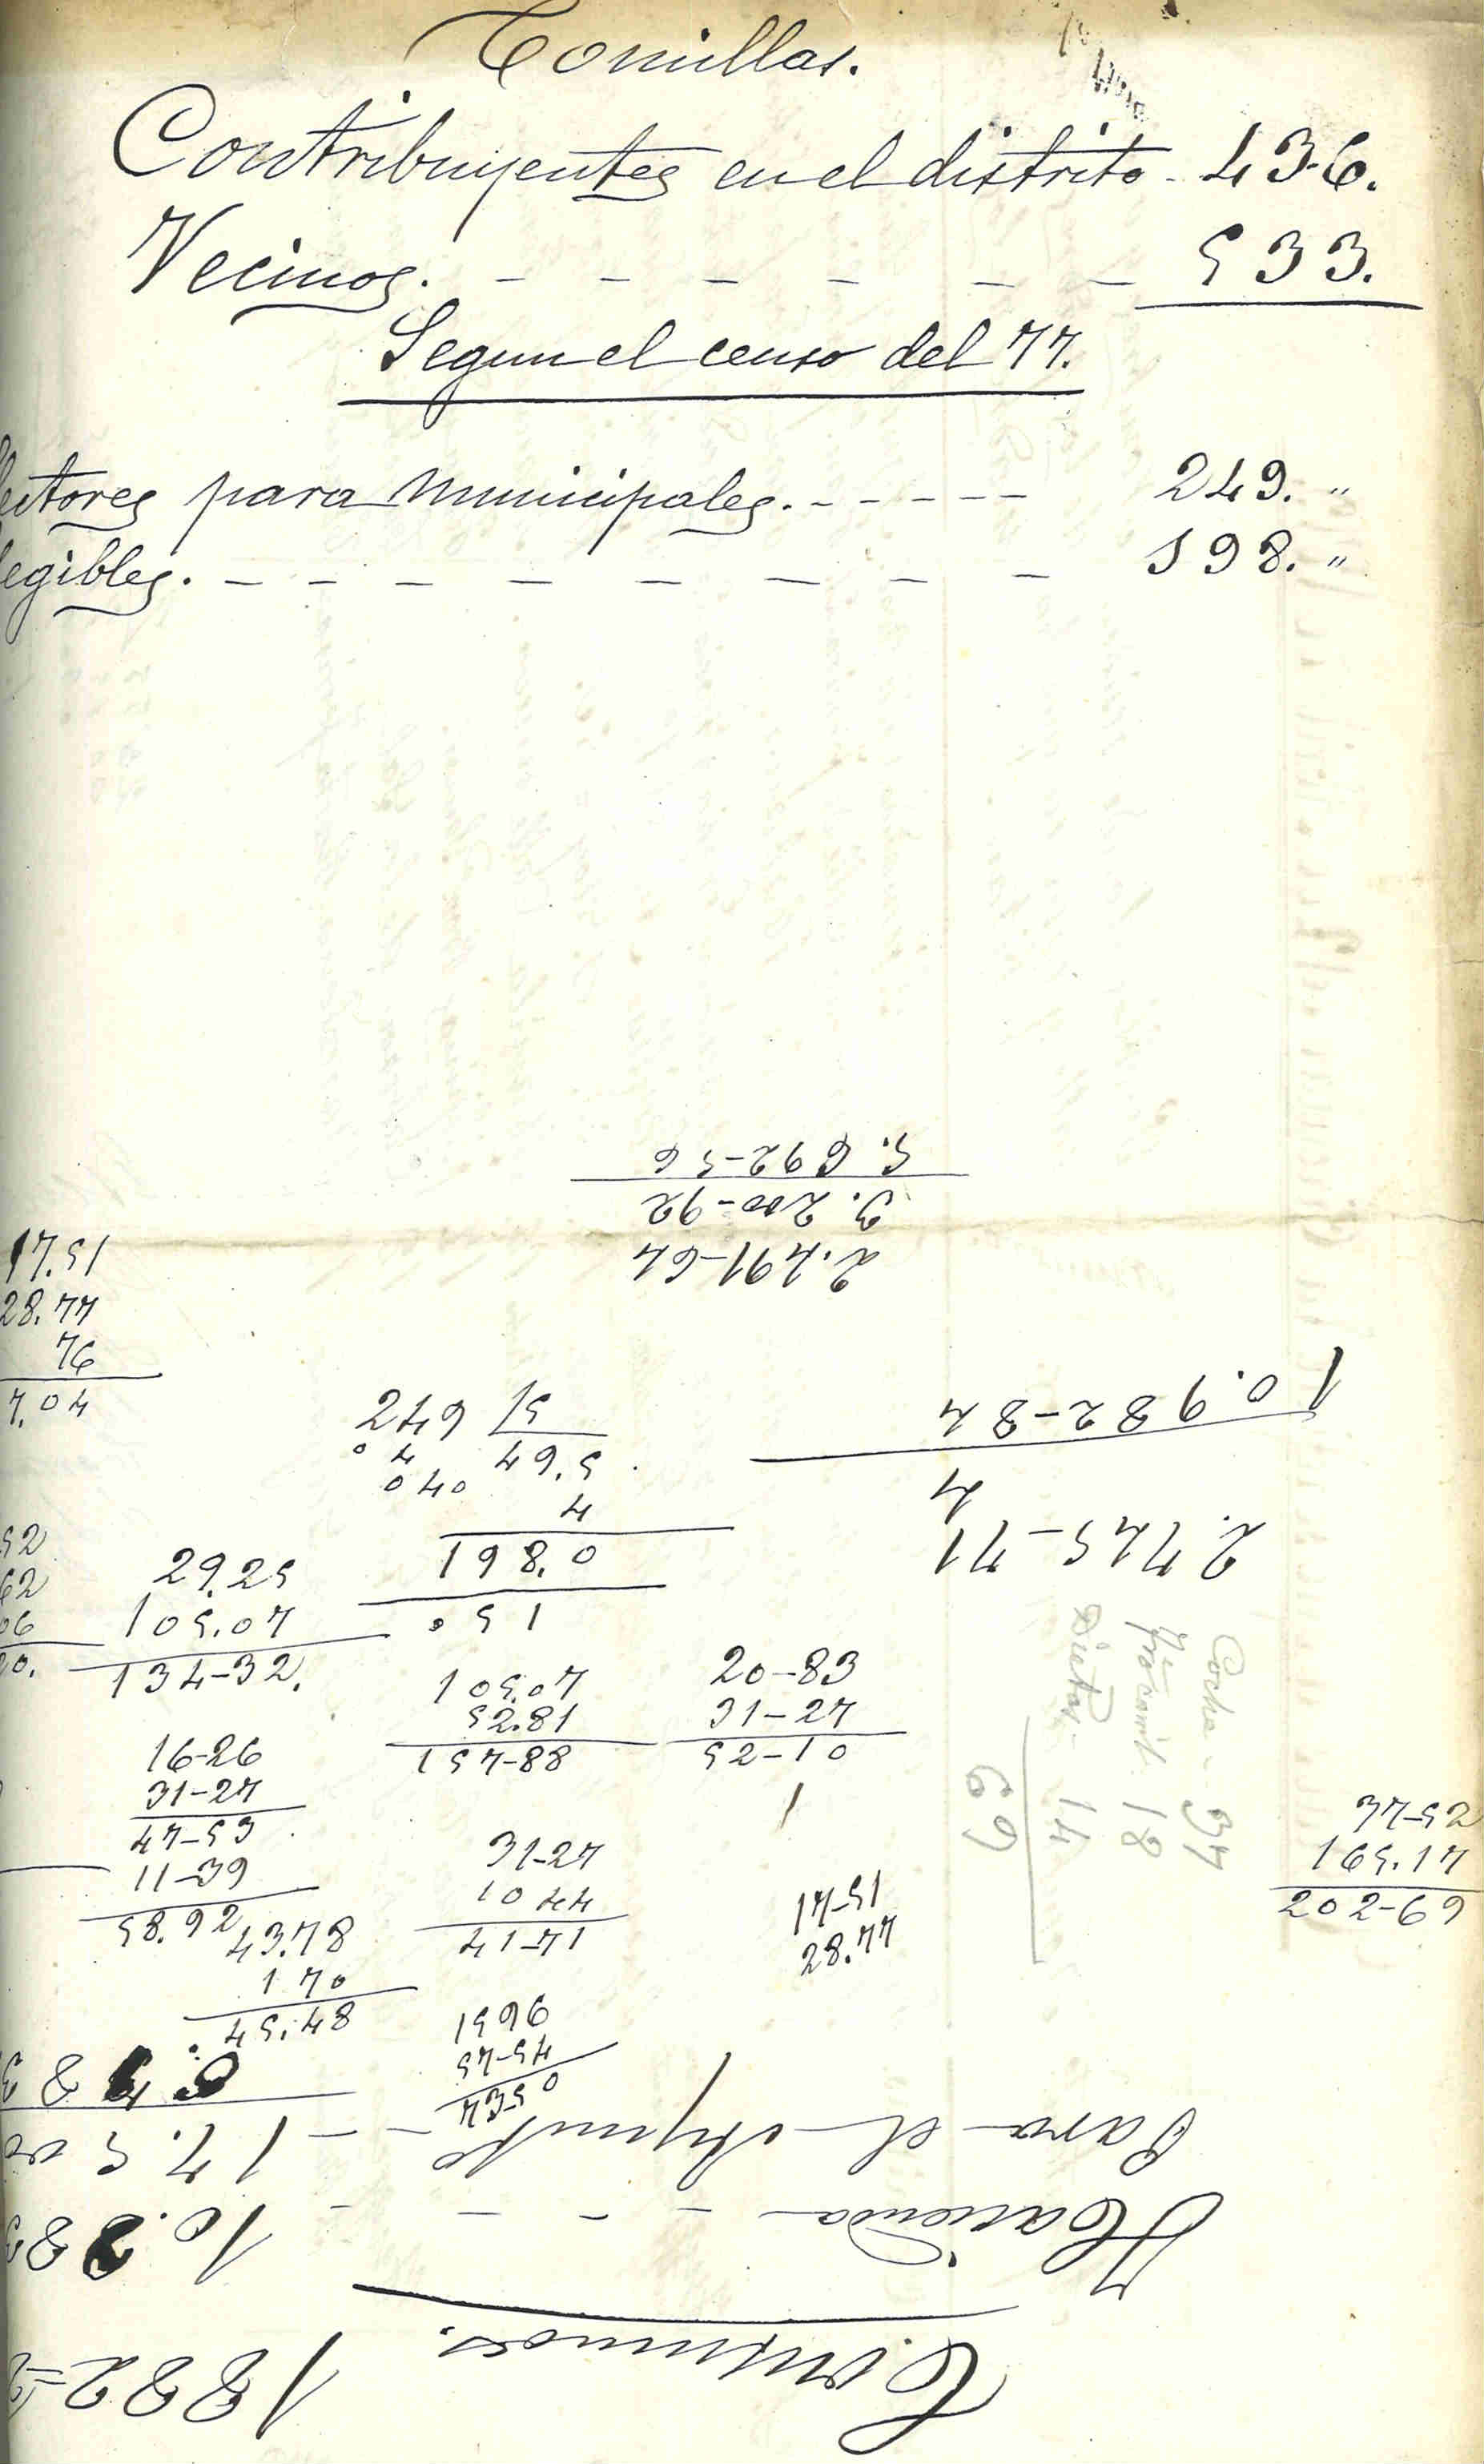 Comillas.
Contribuyentes en el distrito - 436.
Vecinos. - - - - - - 533.
Segun el censo del 77.
lectores para municipales. - - - - - 249. "
legibles. - - - - - - - - 198. "
5.692-56
3.200-92
2.491-64
17.51
28.77
76
7.04
249 15
0 4 49,5
040
4
198.0
.51
10.982-84
4
2.745-71
52
62
06
20.
29.25
105.07
134-32.
105.07
52.81
157-88
20-83
31-27
52-10
1
Coche - 37
18
Dietas - 14
69
16-26
31-27
47-53
11-39
58.92
31-27
10 44
41-71
17-51
28.77
37-52
165.17
202-69
43.78
1.70
45.48
1596
57-54
73-50
1882=
Consumos.
Hacienda - - - - 10.
Para el Ayunto - - 17.5